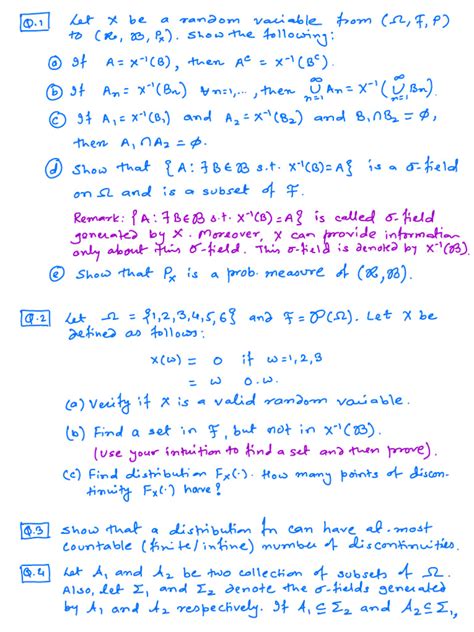 Q.1 Let X be a random variable from (Ω, Ƒ, P)
to (ℝ, 𝔅, Pₓ). Show the following:
(a) If A = X⁻¹(B), then Aᶜ = X⁻¹(Bᶜ).
(b) If An = X⁻¹(Bn) ∀n=1,..., then ∞∪n=1 An = X⁻¹(∞∪n=1 Bn).
(c) If A₁ = X⁻¹(B₁) and A₂ = X⁻¹(B₂) and B₁∩B₂ = ∅,
then A₁∩A₂ = ∅.
(d) Show that {A: ∃B∈𝔅 s.t. X⁻¹(B)=A} is a σ-field
on Ω and is a subset of Ƒ.
Remark: {A: ∃B∈𝔅 s.t. X⁻¹(B)=A} is called σ-field
generated by X. Moreover, X can provide information
only about this σ-field. This σ-field is denoted by X⁻¹(𝔅).
(e) Show that Pₓ is a prob. measure of (ℝ, 𝔅).
Q.2 Let Ω = {1,2,3,4,5,6} and Ƒ = 𝒫(Ω). Let X be
defined as follows:
X(ω) = 0 if ω=1,2,3
= ω o.w.
(a) Verify if X is a valid random variable.
(b) Find a set in Ƒ, but not in X⁻¹(𝔅).
(use your intuition to find a set and then prove).
(c) Find distribution Fₓ(·). How many points of discon-
tinuity Fₓ(·) have?
Q.3 Show that a distribution fn can have at-most
countable (finite/infine) number of discontinuities.
Q.4 Let A₁ and A₂ be two collection of subsets of Ω.
Also, let Σ₁ and Σ₂ denote the σ-fields generated
by A₁ and A₂ respectively. If A₁⊆Σ₂ and A₂⊆Σ₁,